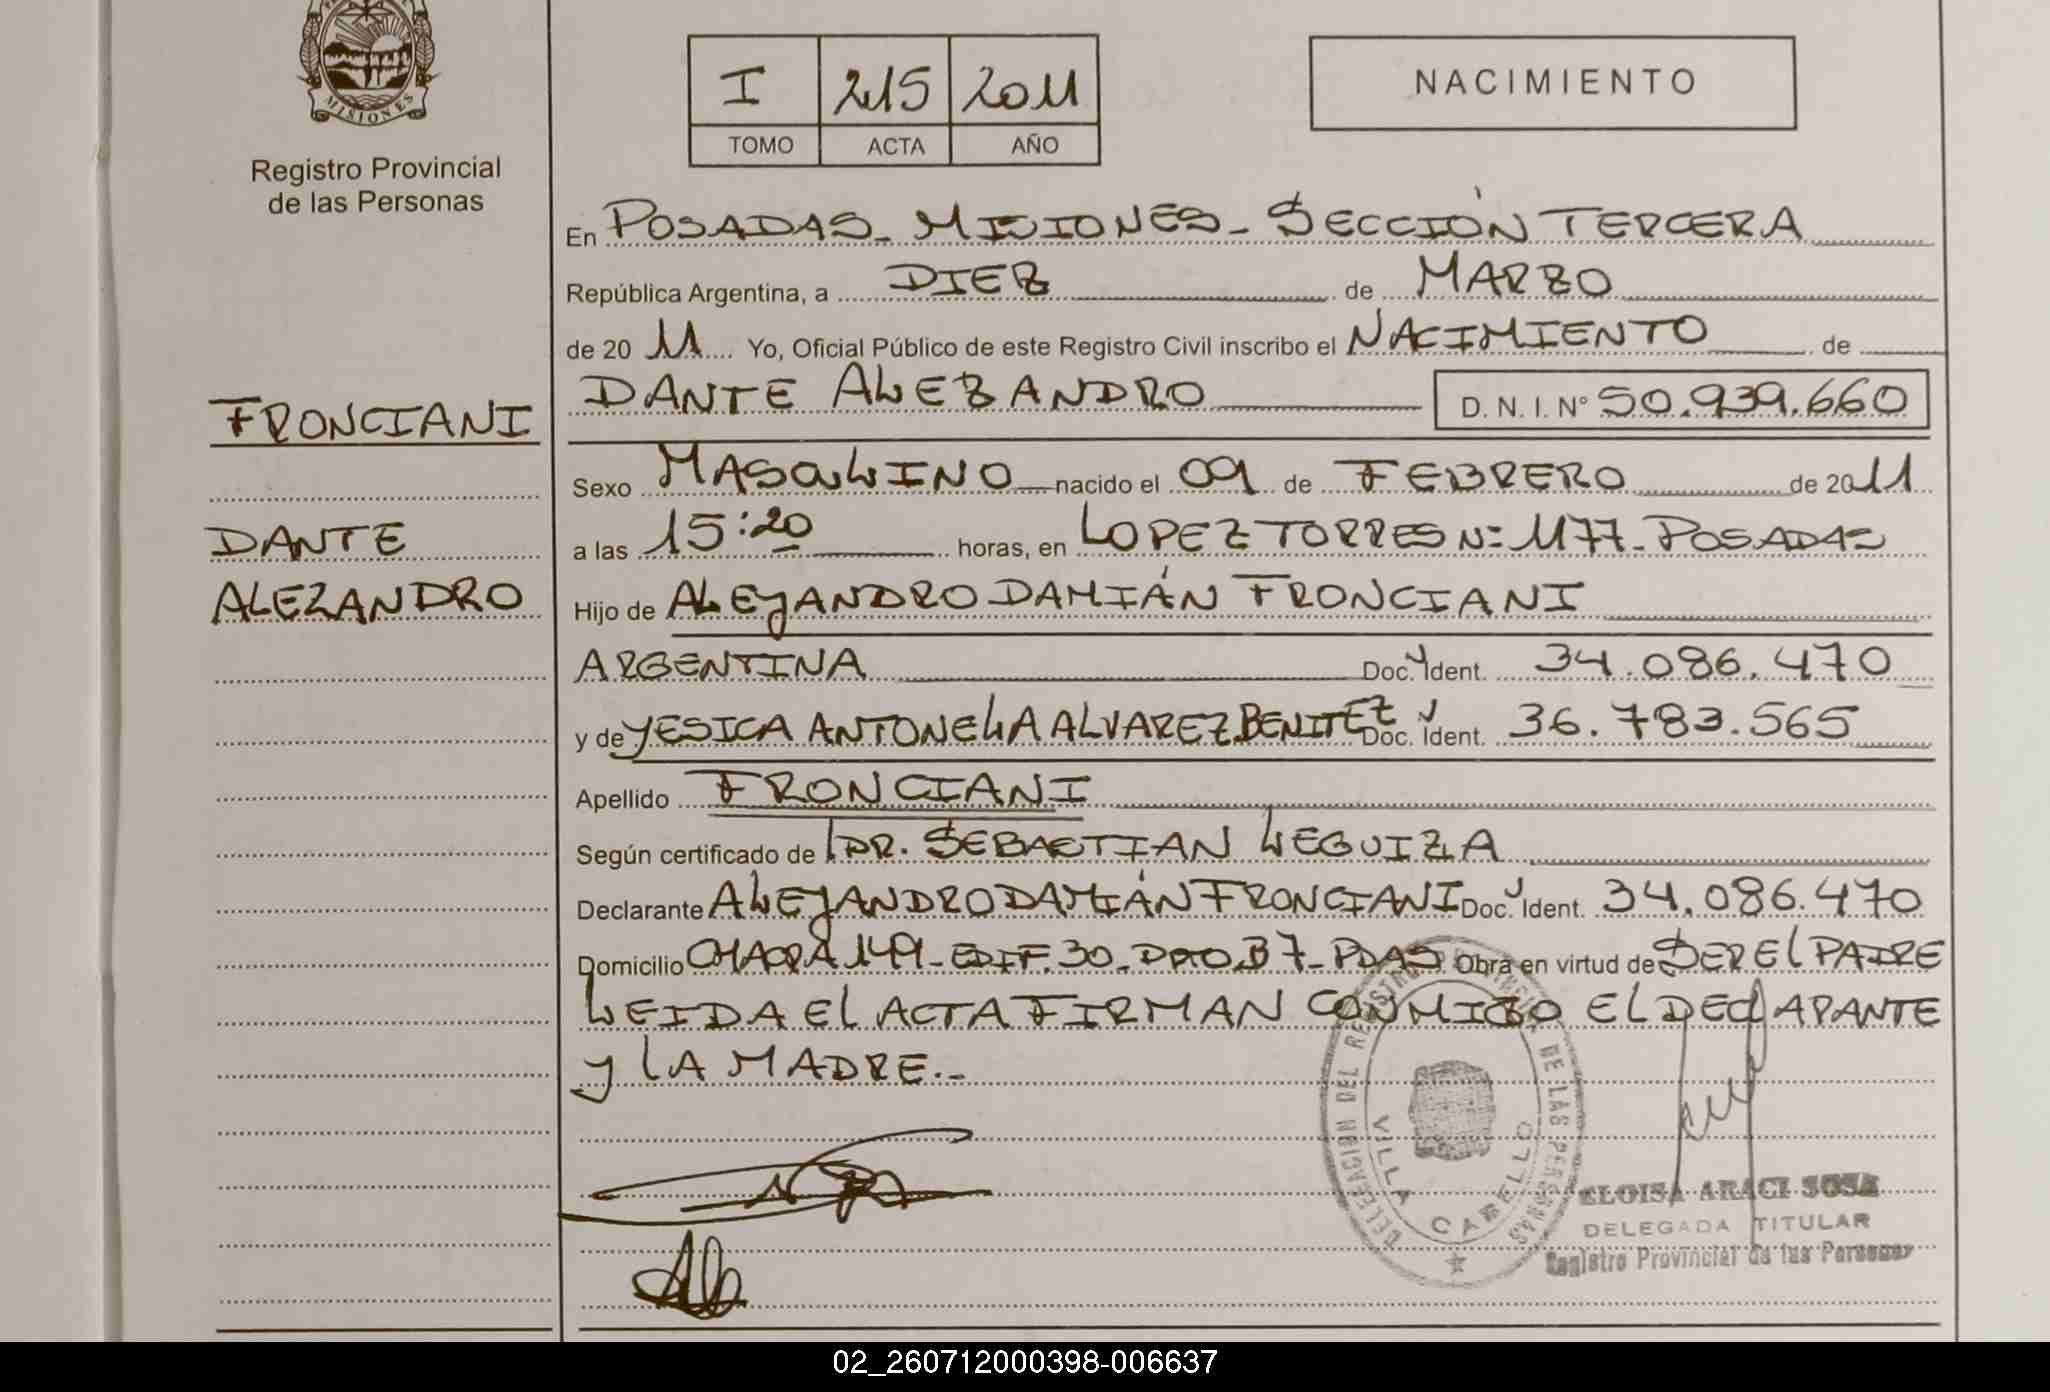 MISIONES
Registro Provincial
de las Personas
I 215 2011
TOMO ACTA AÑO
NACIMIENTO
En POSADAS - MISIONES - SECCIÓN TERCERA
República Argentina, a DIEZ de MARZO
de 2011 Yo, Oficial Público de este Registro Civil inscribo el NACIMIENTO de
DANTE ALEZANDRO D. N. I. Nº 50.939.660
FRONCIANI
DANTE
ALEZANDRO
Sexo MASCULINO nacido el 09 de FEBRERO de 2011
a las 15:20 horas, en LOPEZ TORRES Nº 1177 - POSADAS
Hijo de ALEJANDRO DAMIÁN FRONCIANI
ARGENTINA Doc. Ident. 34.086.470
y de YESICA ANTONELLA ALVAREZ BENITEZ Doc. Ident. 36.783.565
Apellido FRONCIANI
Según certificado de DR. SEBASTIAN LEGUIZA
Declarante ALEJANDRO DAMIÁN FRONCIANI Doc. Ident. 34.086.470
Domicilio CHACRA 149 - EDIF. 30 - DPTO. B 7 - PDAS Obra en virtud de SER EL PADRE
LEIDA EL ACTA FIRMAN CONMIGO EL DECLARANTE
Y LA MADRE.-
DELEGACION DEL REGISTRO PROVINCIAL DE LAS PERSONAS
VILLA CABELLO
ELOISA ARACI SOSA
DELEGADA TITULAR
Registro Provincial de las Personas
02_260712000398-006637